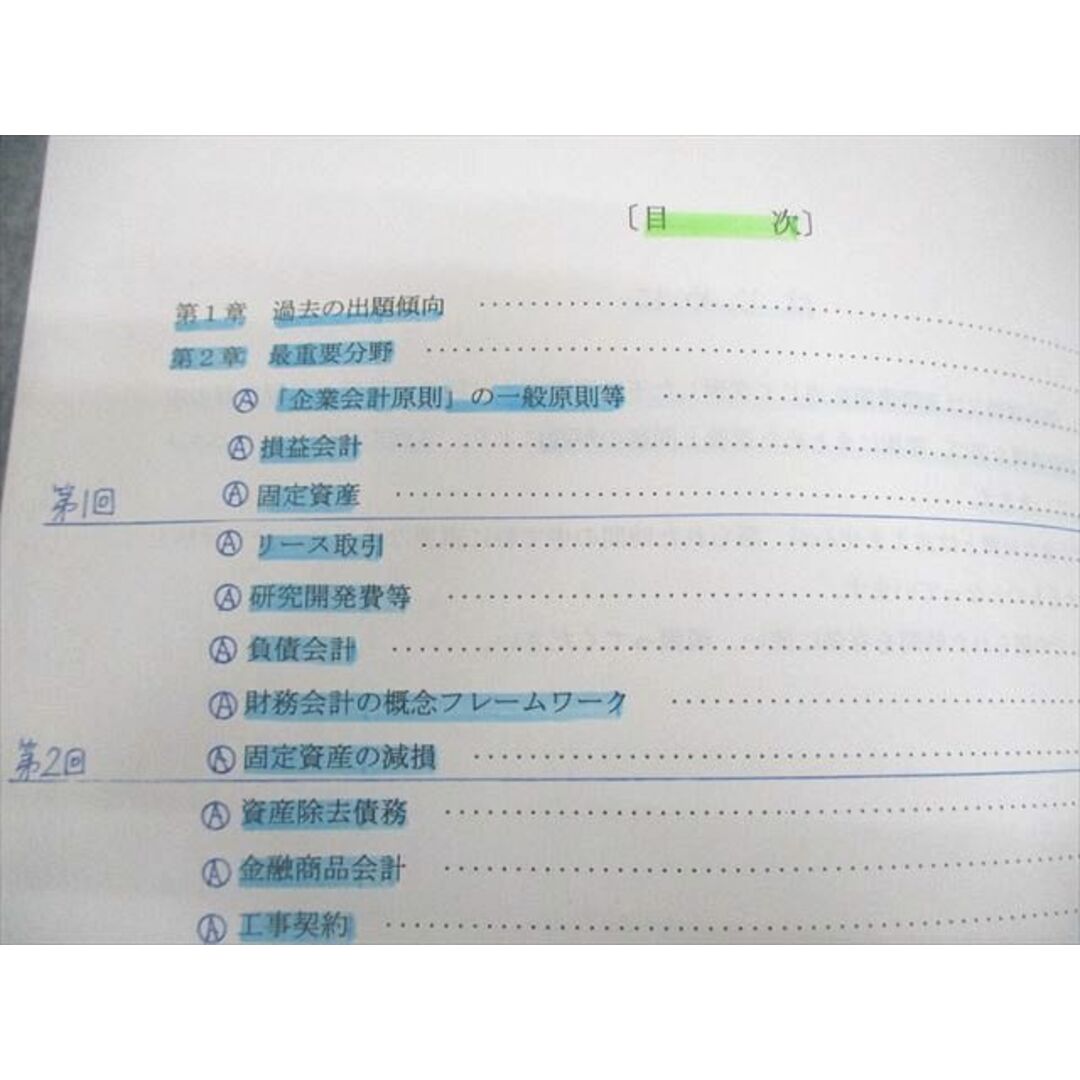 〔目　　　次〕
第１章　過去の出題傾向 ‥‥‥‥‥‥‥‥‥‥
第２章　最重要分野 ‥‥‥‥‥‥‥‥‥‥
Ⓐ 「企業会計原則」の一般原則等 ‥‥‥‥‥‥‥‥‥‥
Ⓐ 損益会計 ‥‥‥‥‥‥‥‥‥‥
第1回 Ⓐ 固定資産 ‥‥‥‥‥‥‥‥‥‥
Ⓐ リース取引 ‥‥‥‥‥‥‥‥‥‥
Ⓐ 研究開発費等 ‥‥‥‥‥‥‥‥‥‥
Ⓐ 負債会計 ‥‥‥‥‥‥‥‥‥‥
Ⓐ 財務会計の概念フレームワーク ‥‥‥‥‥‥‥‥‥‥
第2回 Ⓐ 固定資産の減損 ‥‥‥‥‥‥‥‥‥‥
Ⓐ 資産除去債務 ‥‥‥‥‥‥‥‥‥‥
Ⓐ 金融商品会計 ‥‥‥‥‥‥‥‥‥‥
Ⓐ 工事契約 ‥‥‥‥‥‥‥‥‥‥